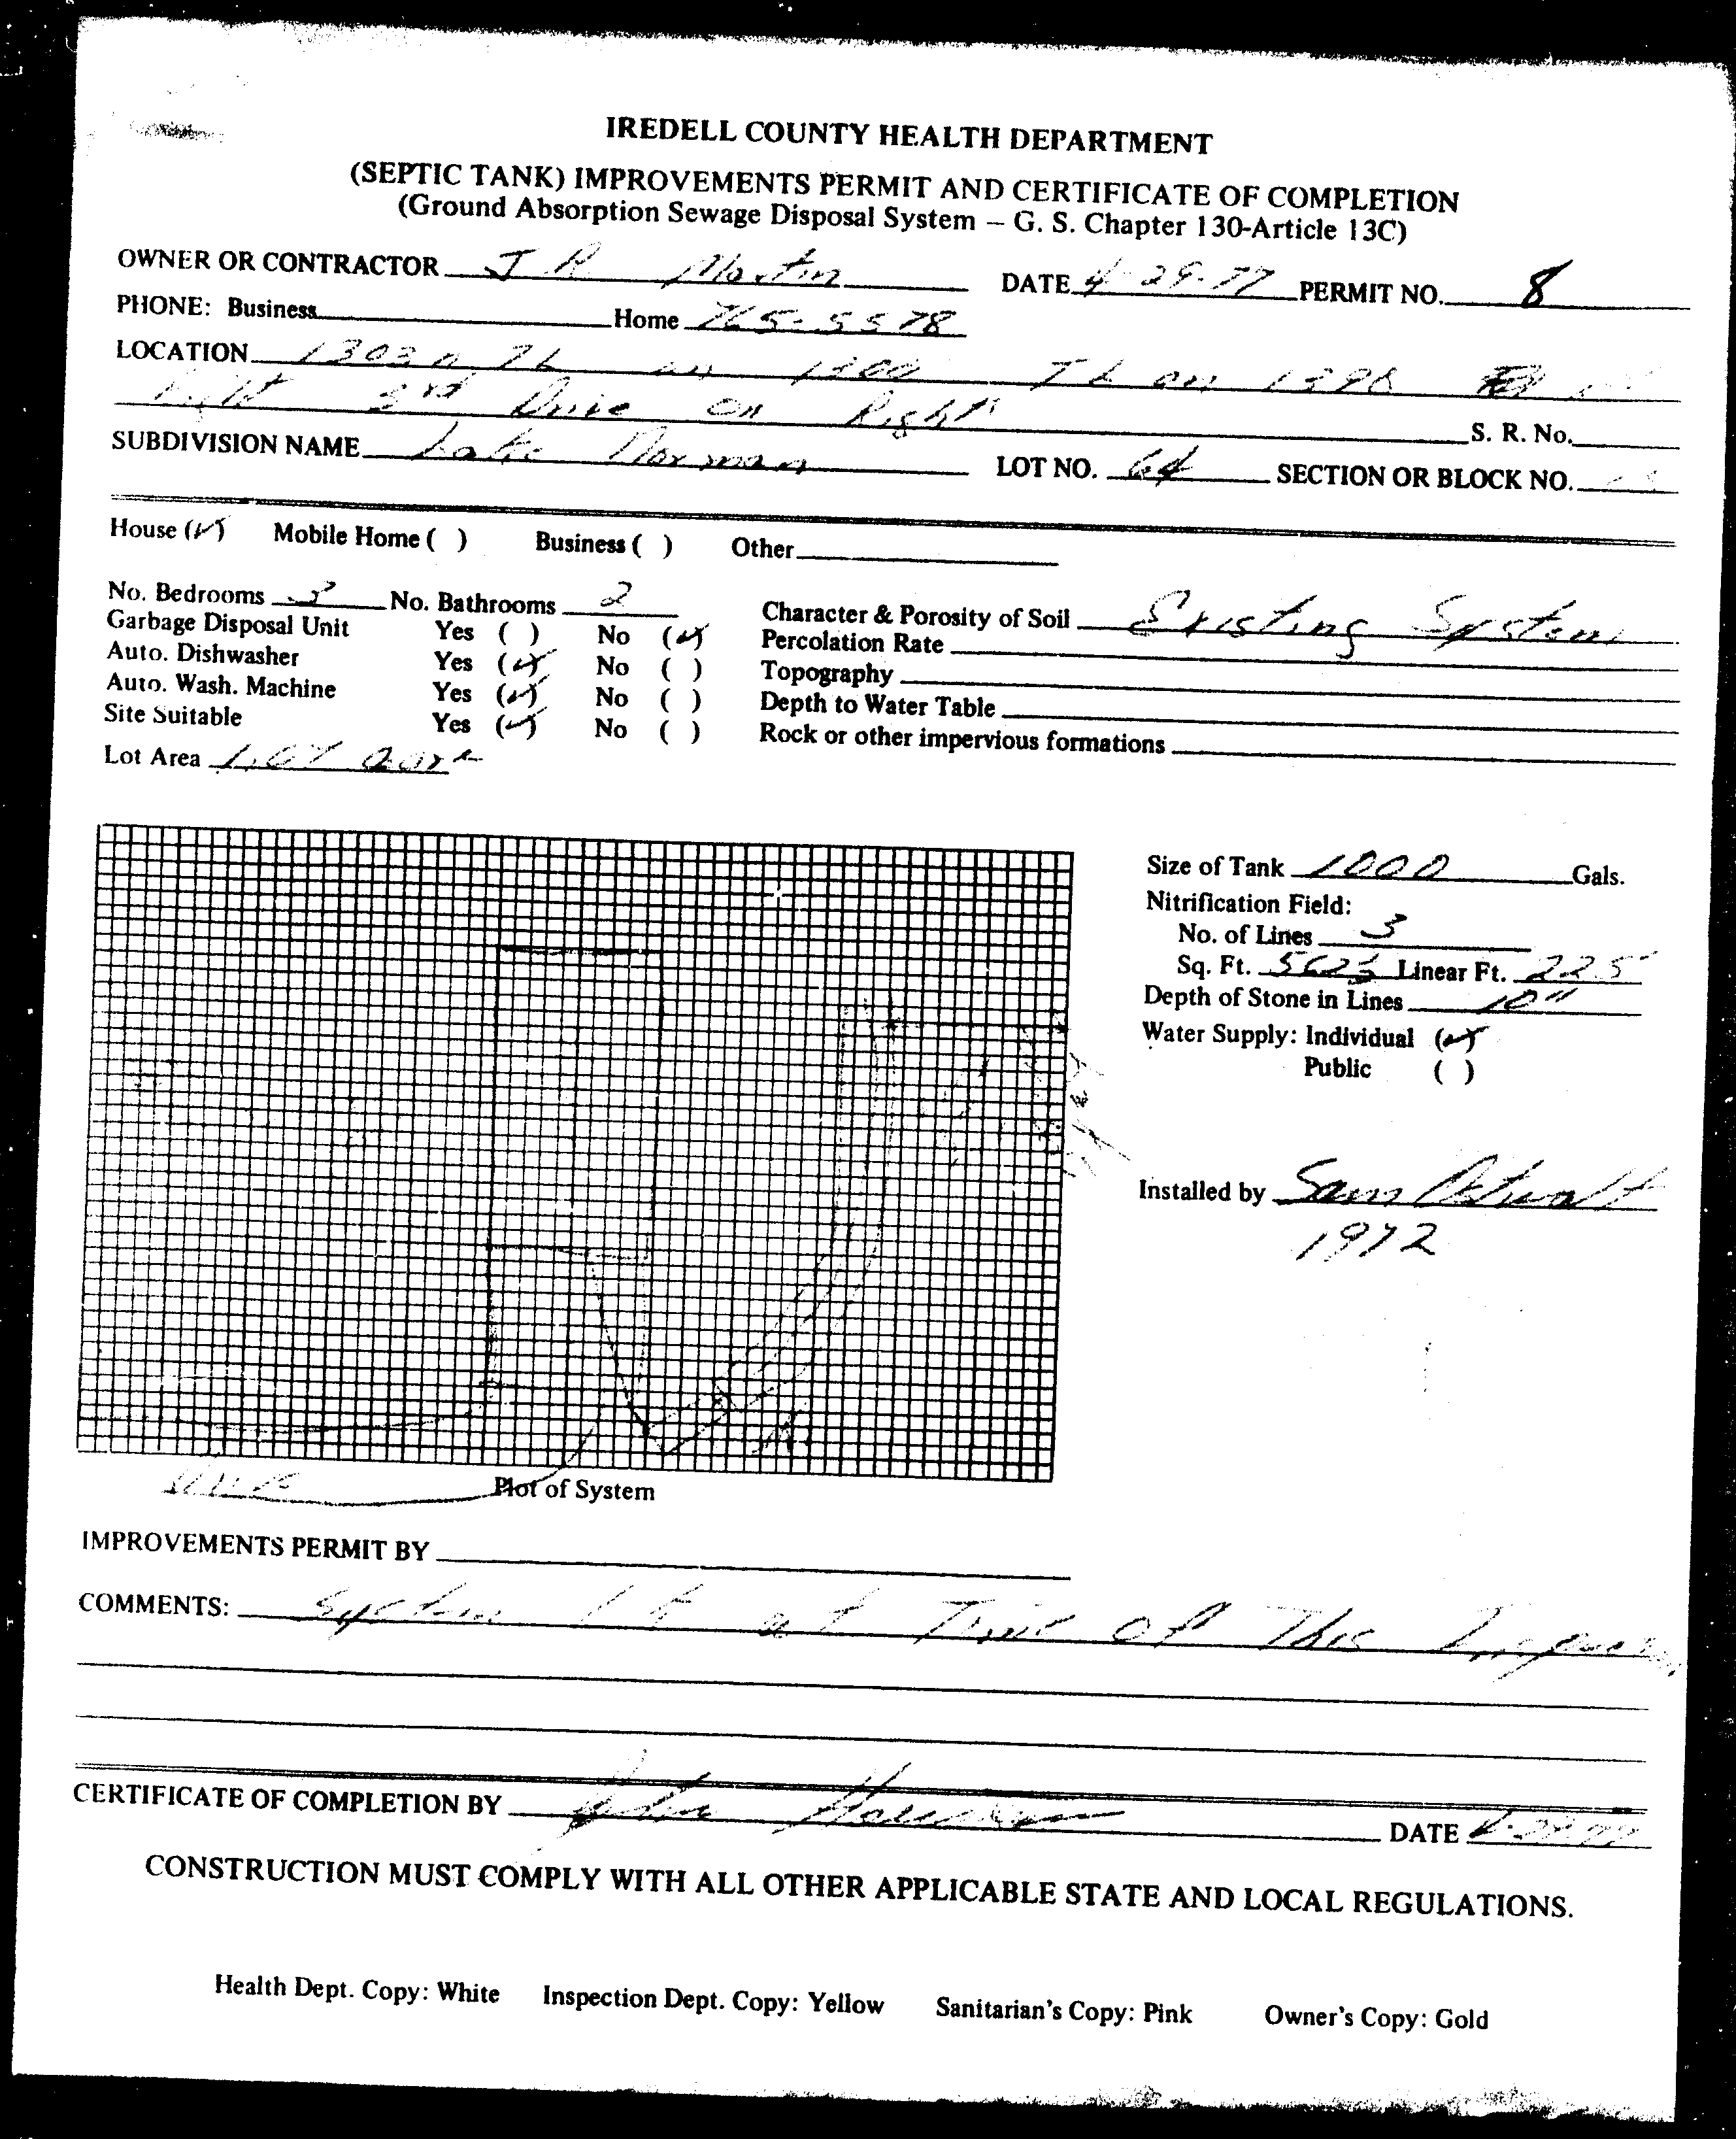 IREDELL COUNTY HEALTH DEPARTMENT
(SEPTIC TANK) IMPROVEMENTS PERMIT AND CERTIFICATE OF COMPLETION
(Ground Absorption Sewage Disposal System – G. S. Chapter 130-Article 13C)
OWNER OR CONTRACTOR J R Martin DATE 4-29-77 PERMIT NO. 8
PHONE: Business Home 765-5578
LOCATION 1303 TL on 1300 TL on 1396
Right 3rd Drive on Right S. R. No.
SUBDIVISION NAME Lake Norman LOT NO. 64 SECTION OR BLOCK NO.
House (✓) Mobile Home ( ) Business ( ) Other
No. Bedrooms 3 No. Bathrooms 2 Character & Porosity of Soil Existing System
Garbage Disposal Unit Yes ( ) No (✓) Percolation Rate
Auto. Dishwasher Yes (✓) No ( ) Topography
Auto. Wash. Machine Yes (✓) No ( ) Depth to Water Table
Site Suitable Yes (✓) No ( ) Rock or other impervious formations
Lot Area 1.07 acre
Size of Tank 1000 Gals.
Nitrification Field:
No. of Lines 3
Sq. Ft. 562.5 Linear Ft. 225'
Depth of Stone in Lines 10"
Water Supply: Individual (✓)
Public ( )
Installed by Sam
1972
Plot of System
IMPROVEMENTS PERMIT BY
COMMENTS: System at Time of This
CERTIFICATE OF COMPLETION BY DATE 4-29-77
CONSTRUCTION MUST COMPLY WITH ALL OTHER APPLICABLE STATE AND LOCAL REGULATIONS.
Health Dept. Copy: White Inspection Dept. Copy: Yellow Sanitarian's Copy: Pink Owner's Copy: Gold